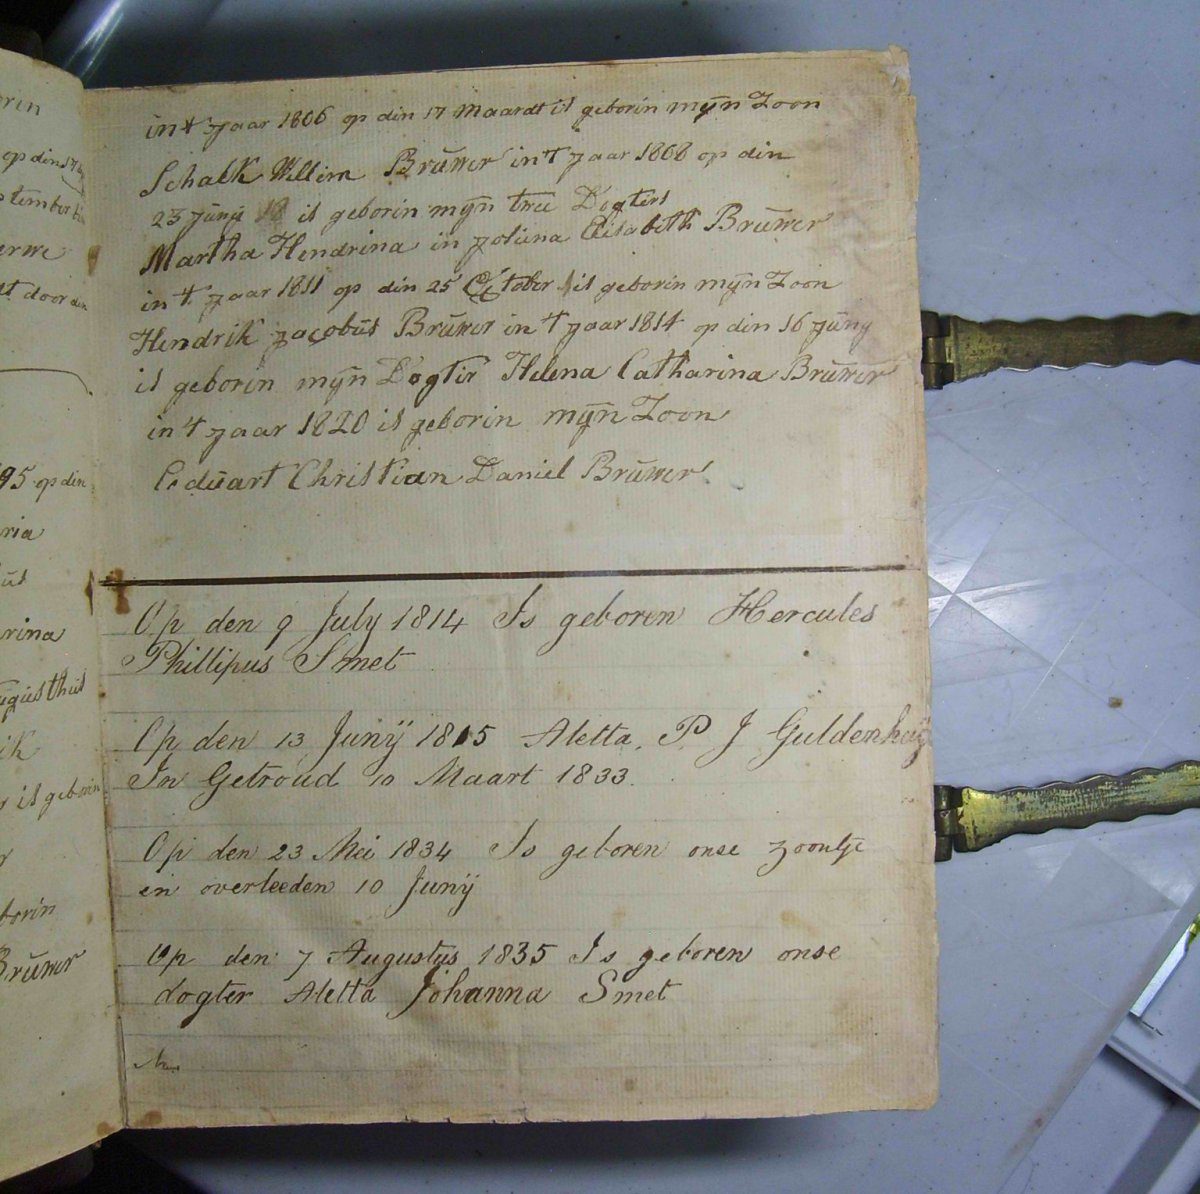 orin
op din 17
ptember
erwe
door din
95 op din
ria
rina
ugusthus
ik
r is geborin
r
borin
Brüwer
in 't jaar 1806 op din 17 Maardt is geborin mÿn Zoon
Schalk Willim Brüwer in 't jaar 1808 op din
23 Junÿ 18 is geborin mÿn twee Dogters
Martha Hendrina in Joliena Elisabeth Brüwer
in 't jaar 1811 op din 25 October is geborin mÿn Zoon
Hendrik Jacobüs Brüwer in 't jaar 1814 op din 16 Jüny
is geborin mÿn Dogtir Helena Catharina Brüwer
in 't jaar 1820 is geborin mÿn Zoon
Eedüart Christian Daniel Brüwer
Op den 9 July 1814 Is geboren Hercules
Phillipus Smet
Op den 13 Junÿ 1815 Aletta P J Guldenhuÿ
In Getroud 10 Maart 1833.
Op den 23 Mei 1834 Is geboren onse zoontje
en overleeden 10 Junÿ
Op den 7 Augustus 1835 Is geboren onse
dogter Aletta Johanna Smet